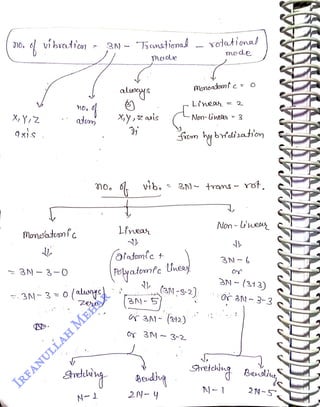 no. of vibration = 3N - Transtional - rotational
mode mode
always
③
Monoatomic = 0
Linear = 2
Non-linear = 3
X, Y, Z
axis
no. of
atom
X, Y, Z axis
from hybridization
no. of vib. = 3N - trans - rot.
Monoatomic
= 3N - 3 - 0
= 3N - 3 = 0 (always
zero)
Linear
Diatomic +
Polyatomic linear
3N - 5
(3N-3-2)
or 3N - (3+2)
or 3N - 3-2
Stretching
N-1
Bending
2N-4
Non-linear
3N - 6
or
3N - (3+3)
or 3N - 3-3
Stretching
N-1
Bending
2N-5
IRFANULLAH MEHAR